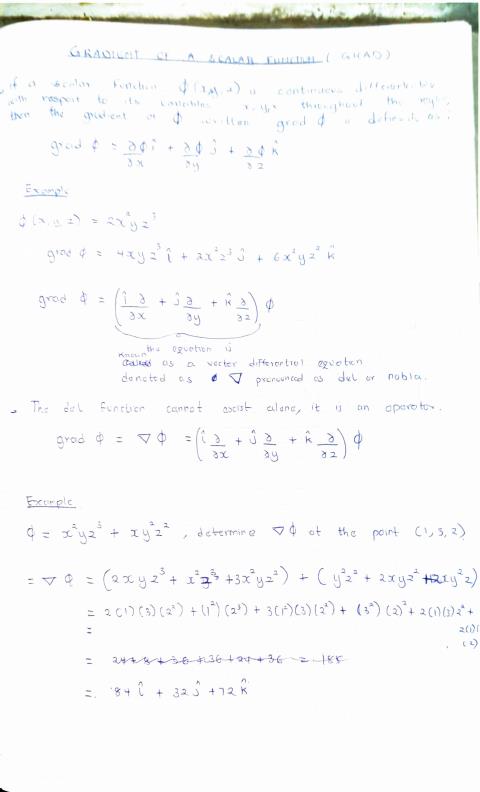 GRADIENT OF A SCALAR FUNCTION (GRAD)
If a scalar function ϕ(x,y,z) is continuous differentiable
with respect to its variables x,y,z throughout the region,
then the gradient of ϕ written grad ϕ is defined as:
grad ϕ = ∂ϕ/∂x î + ∂ϕ/∂y ĵ + ∂ϕ/∂z k̂
Example
ϕ(x,y,z) = 2x²yz³
grad ϕ = 4xyz³ î + 2x²z³ ĵ + 6x²yz² k̂
grad ϕ = (î ∂/∂x + ĵ ∂/∂y + k̂ ∂/∂z) ϕ
the equation is
known as a vector differential equation
denoted as ∇ pronounced as del or nabla.
The del function cannot exist alone, it is an operator.
grad ϕ = ∇ϕ = (î ∂/∂x + ĵ ∂/∂y + k̂ ∂/∂z) ϕ
Example
ϕ = x²yz³ + xy²z², determine ∇ϕ at the point (1,3,2)
= ∇ϕ = (2xyz³ + x²z³ + 3x²yz²) + (y²z² + 2xyz² + 2xy²z)
= 2(1)(3)(2³) + (1²)(2³) + 3(1²)(3)(2²) + (3²)(2)² + 2(1)(3)2² +
= 2(1)
(2)
= 24+8+36+36+24+36 = 188
= 84 î + 32 ĵ + 72 k̂